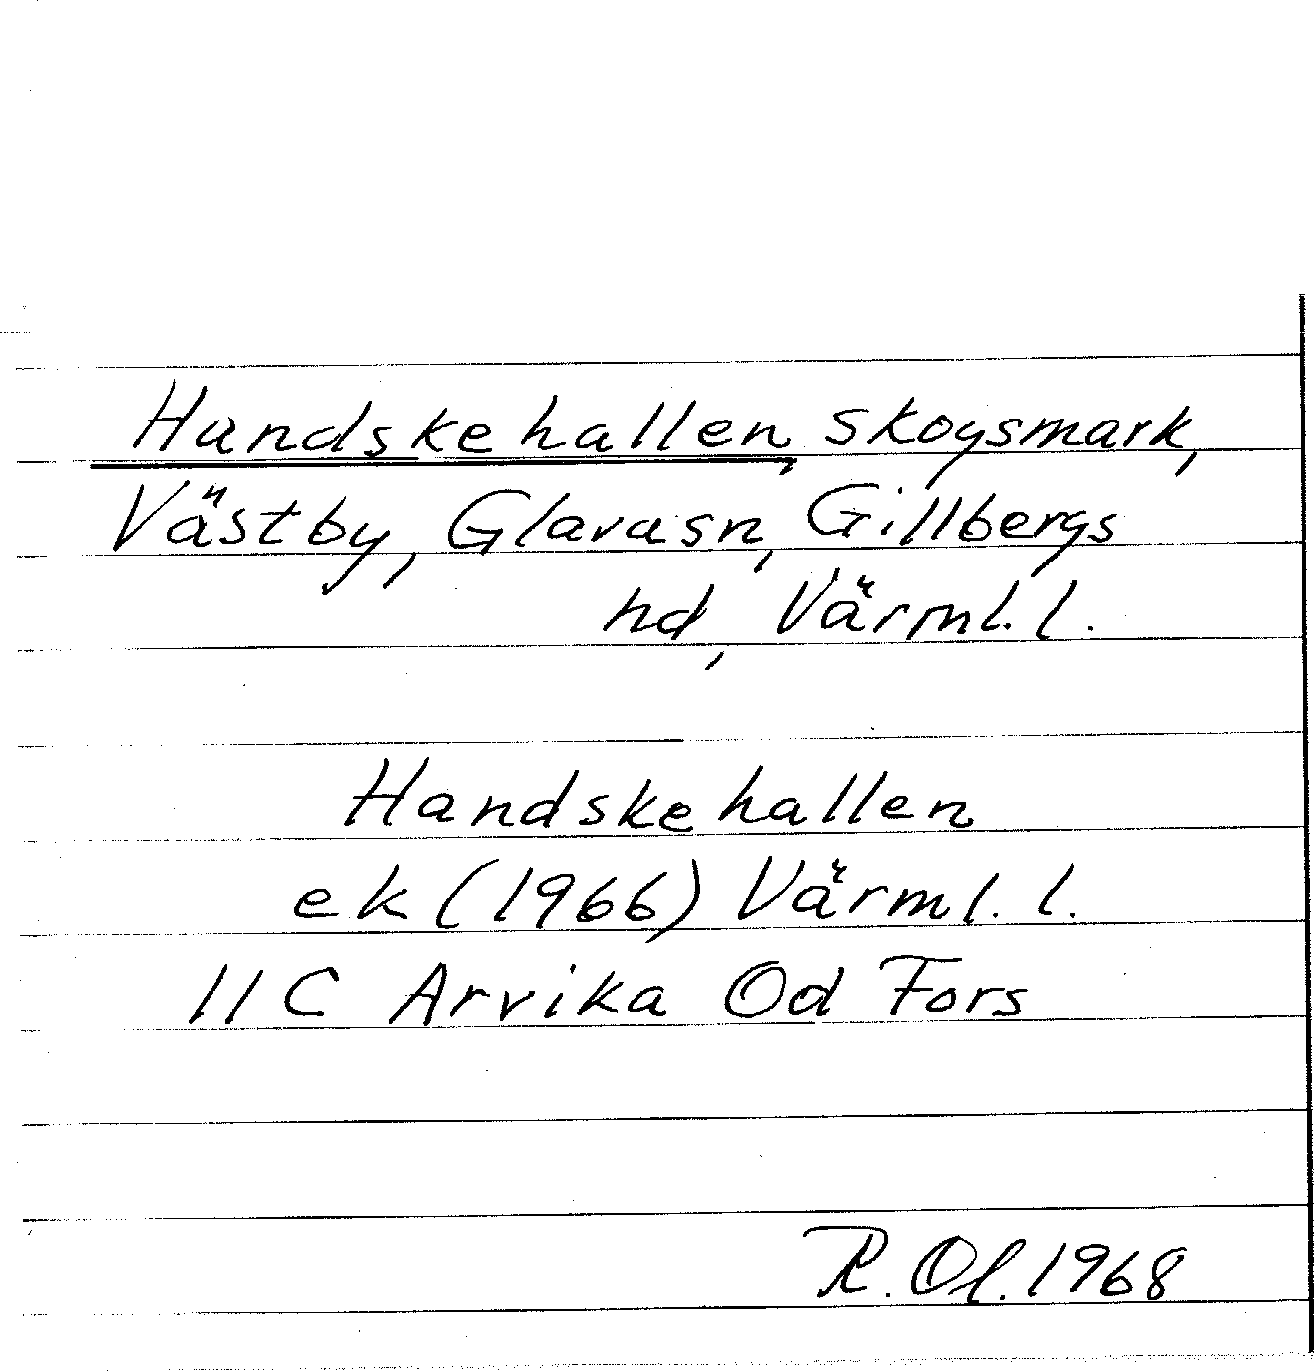 Handskehallen, skogsmark,
Västby, Glavasn, Gillbergs
hd, Värml. l.
Handskehallen
ek (1966) Värml. l.
11C Arvika Od Fors
R. Ol. 1968